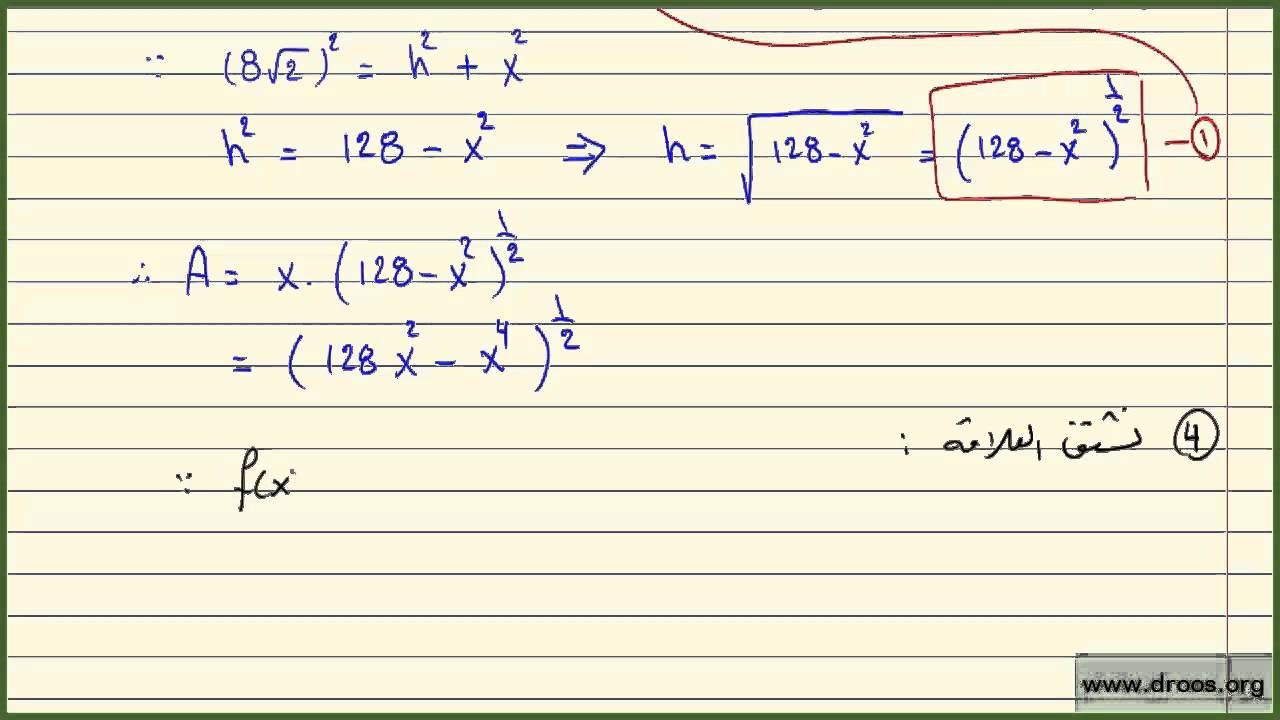 ∵ (8√2)² = h² + x²
h² = 128 - x² ⇒ h = √(128 - x²) = (128 - x²)^½ - ①
∴ A = x . (128 - x²)^½
= (128 x² - x⁴)^½
④ نشتق العلاقة :
∵ f(x
www.droos.org